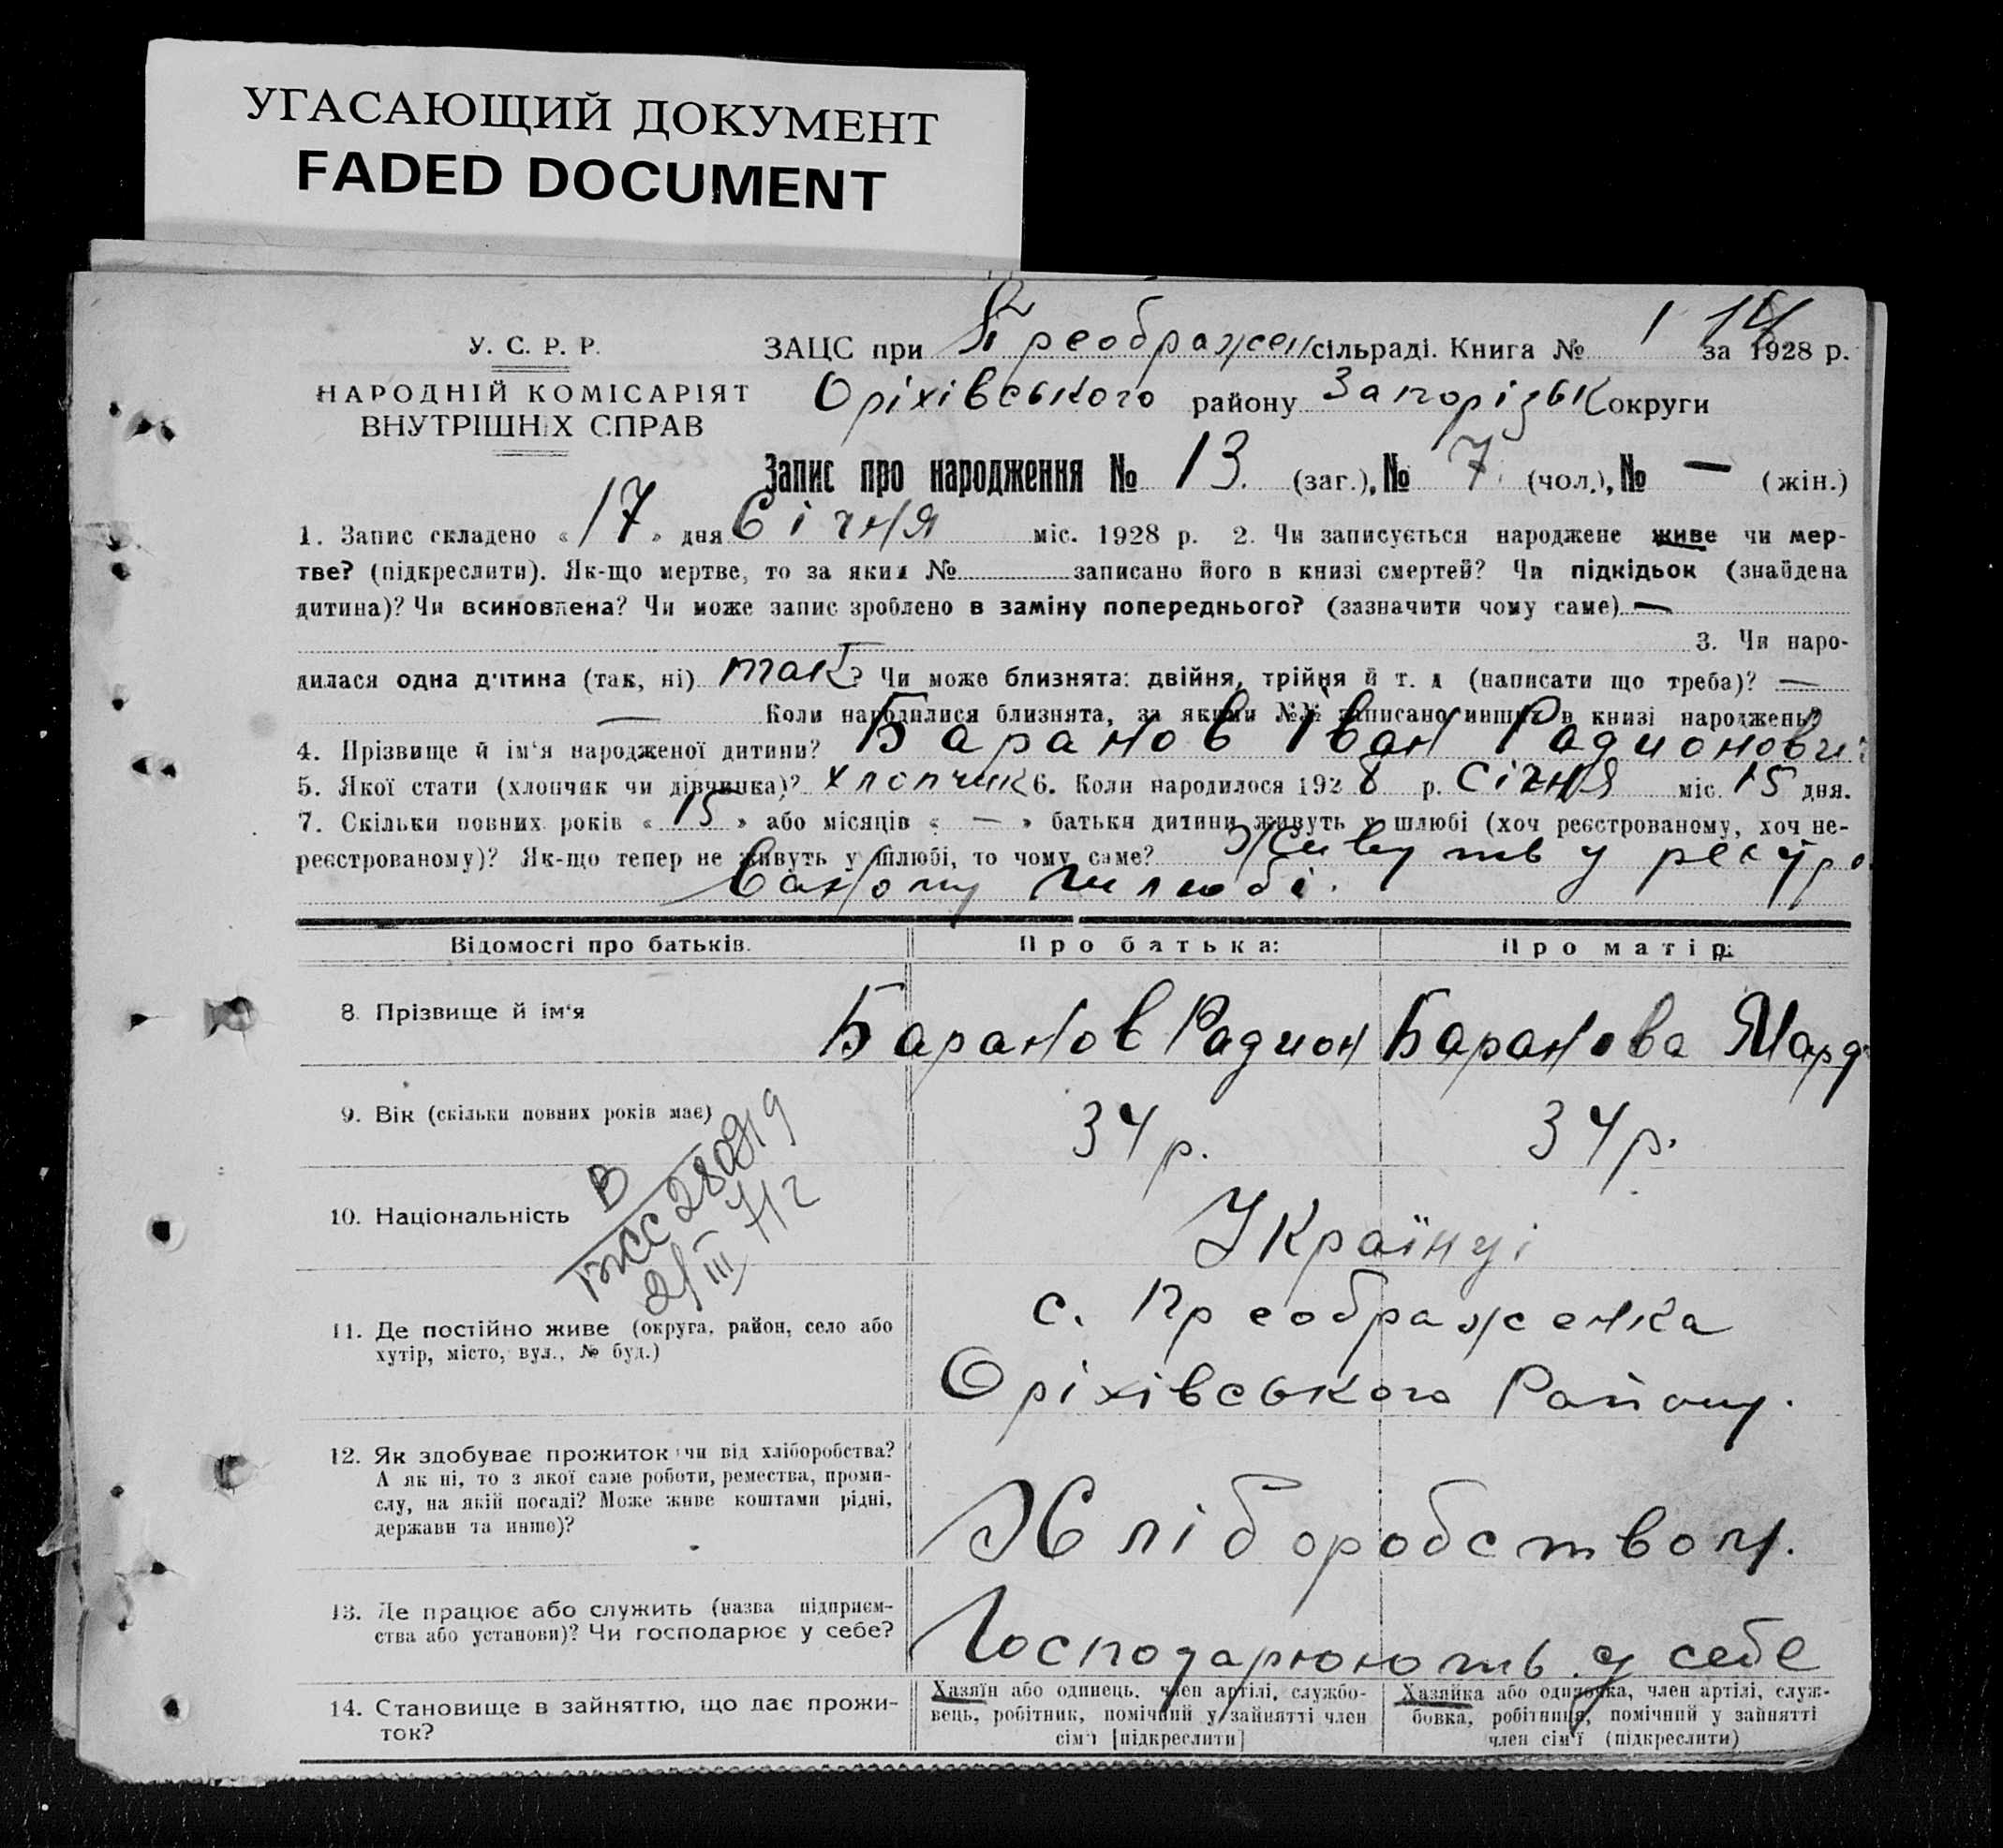 УГАСАЮЩИЙ ДОКУМЕНТ
FADED DOCUMENT
У. С. Р. Р.
НАРОДНІЙ КОМІСАРІЯТ
ВНУТРІШНІХ СПРАВ
ЗАЦС при Преображен сільраді. Книга № 1 за 1928 р.
14
Оріхівського району Запорізьк округи
Запис про народження № 13. (заг.), № 7 (чол.), № — (жін.)
1. Запис складено « 17 » дня Січня міс. 1928 р. 2. Чи записується народжене живе чи мер-
тве? (підкреслити). Як-що мертве, то за яким № записано його в книзі смертей? Чи підкідьок (знайдена
дитина)? Чи всиновлена? Чи може запис зроблено в заміну попереднього? (зазначити чому саме) —
3. Чи наро-
дилася одна дитина (так, ні) так? Чи може близнята: двійня, трійня й т. д (написати що треба)? —
— Коли народилися близнята, за якими №№ записано инших в книзі народжень?
4. Прізвище й ім'я народженої дитини? Баранов Іван Радионович
5. Якої стати (хлопчик чи дівчинка)? хлопчик 6. Коли народилося 1928 р. Січня міс. 15 дня.
7. Скільки повних років « 15 » або місяців « — » батьки дитини живуть у шлюбі (хоч реєстрованому, хоч не-
реєстрованому)? Як-що тепер не живуть у шлюбі, то чому саме? Живуть у
ваному шлюбі.
Відомості про батьків.
Про батька:
Про матір:
8. Прізвище й ім'я
Баранов Радион
Баранова
9. Вік (скільки повних років має)
34 р.
34 р.
В
21 III 71 г
10. Національність
Українці
11. Де постійно живе (округа, район, село або
хутір, місто, вул., № буд.)
с. Преображенка
Оріхівського Району.
12. Як здобуває прожиток чи від хліборобства?
А як ні, то з якої саме роботи, ремества, проми-
слу, на якій посаді? Може живе коштами рідні,
держави та инше)?
Хліборобством.
13. Де працює або служить (назва підприєм-
ства або установи)? Чи господарює у себе?
Господарюють у себе
14. Становище в зайняттю, що дає прожи-
ток?
Хазяїн або одинець, член артілі, службо-
вець, робітник, помічний у зайнятті член
сім'ї [підкреслити]
Хазяйка або одиночка, член артілі, служ-
бовка, робітниця, помічний у зайнятті
член сім'ї (підкреслити)